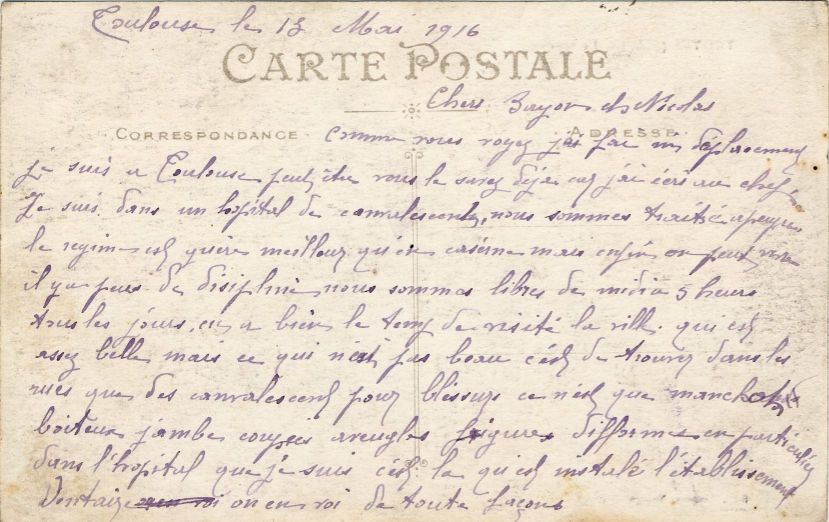 Toulouse le 13 Mai 1916
CARTE POSTALE
Chers Bayon et Nicolas
CORRESPONDANCE
ADRESSE
Comme vous voyez j'ai fai un déplacement
je suis a Toulouse peut être vous le savez déja car j'ai écri au chef
Je suis dans un hopital de convalescents, nous sommes traité apeupres
le regime est guère meilleur qu'en caserne mais enfin on peut vivre
il y a peus de disipline nous sommes libres de midi a 5 heurs
tous les jours, on a bien le temp de visité la ville qui est
assez belle mais ce qui n'est pas beau c'est de trouver dans les
rues que des convalescent pour blessure ce n'est que manchots
boiteux jambe coupés aveugles figures difformes en particulier
dans l'hopital que je suis c'est la qu'est instalé l'établissement
on en voi de toute façons